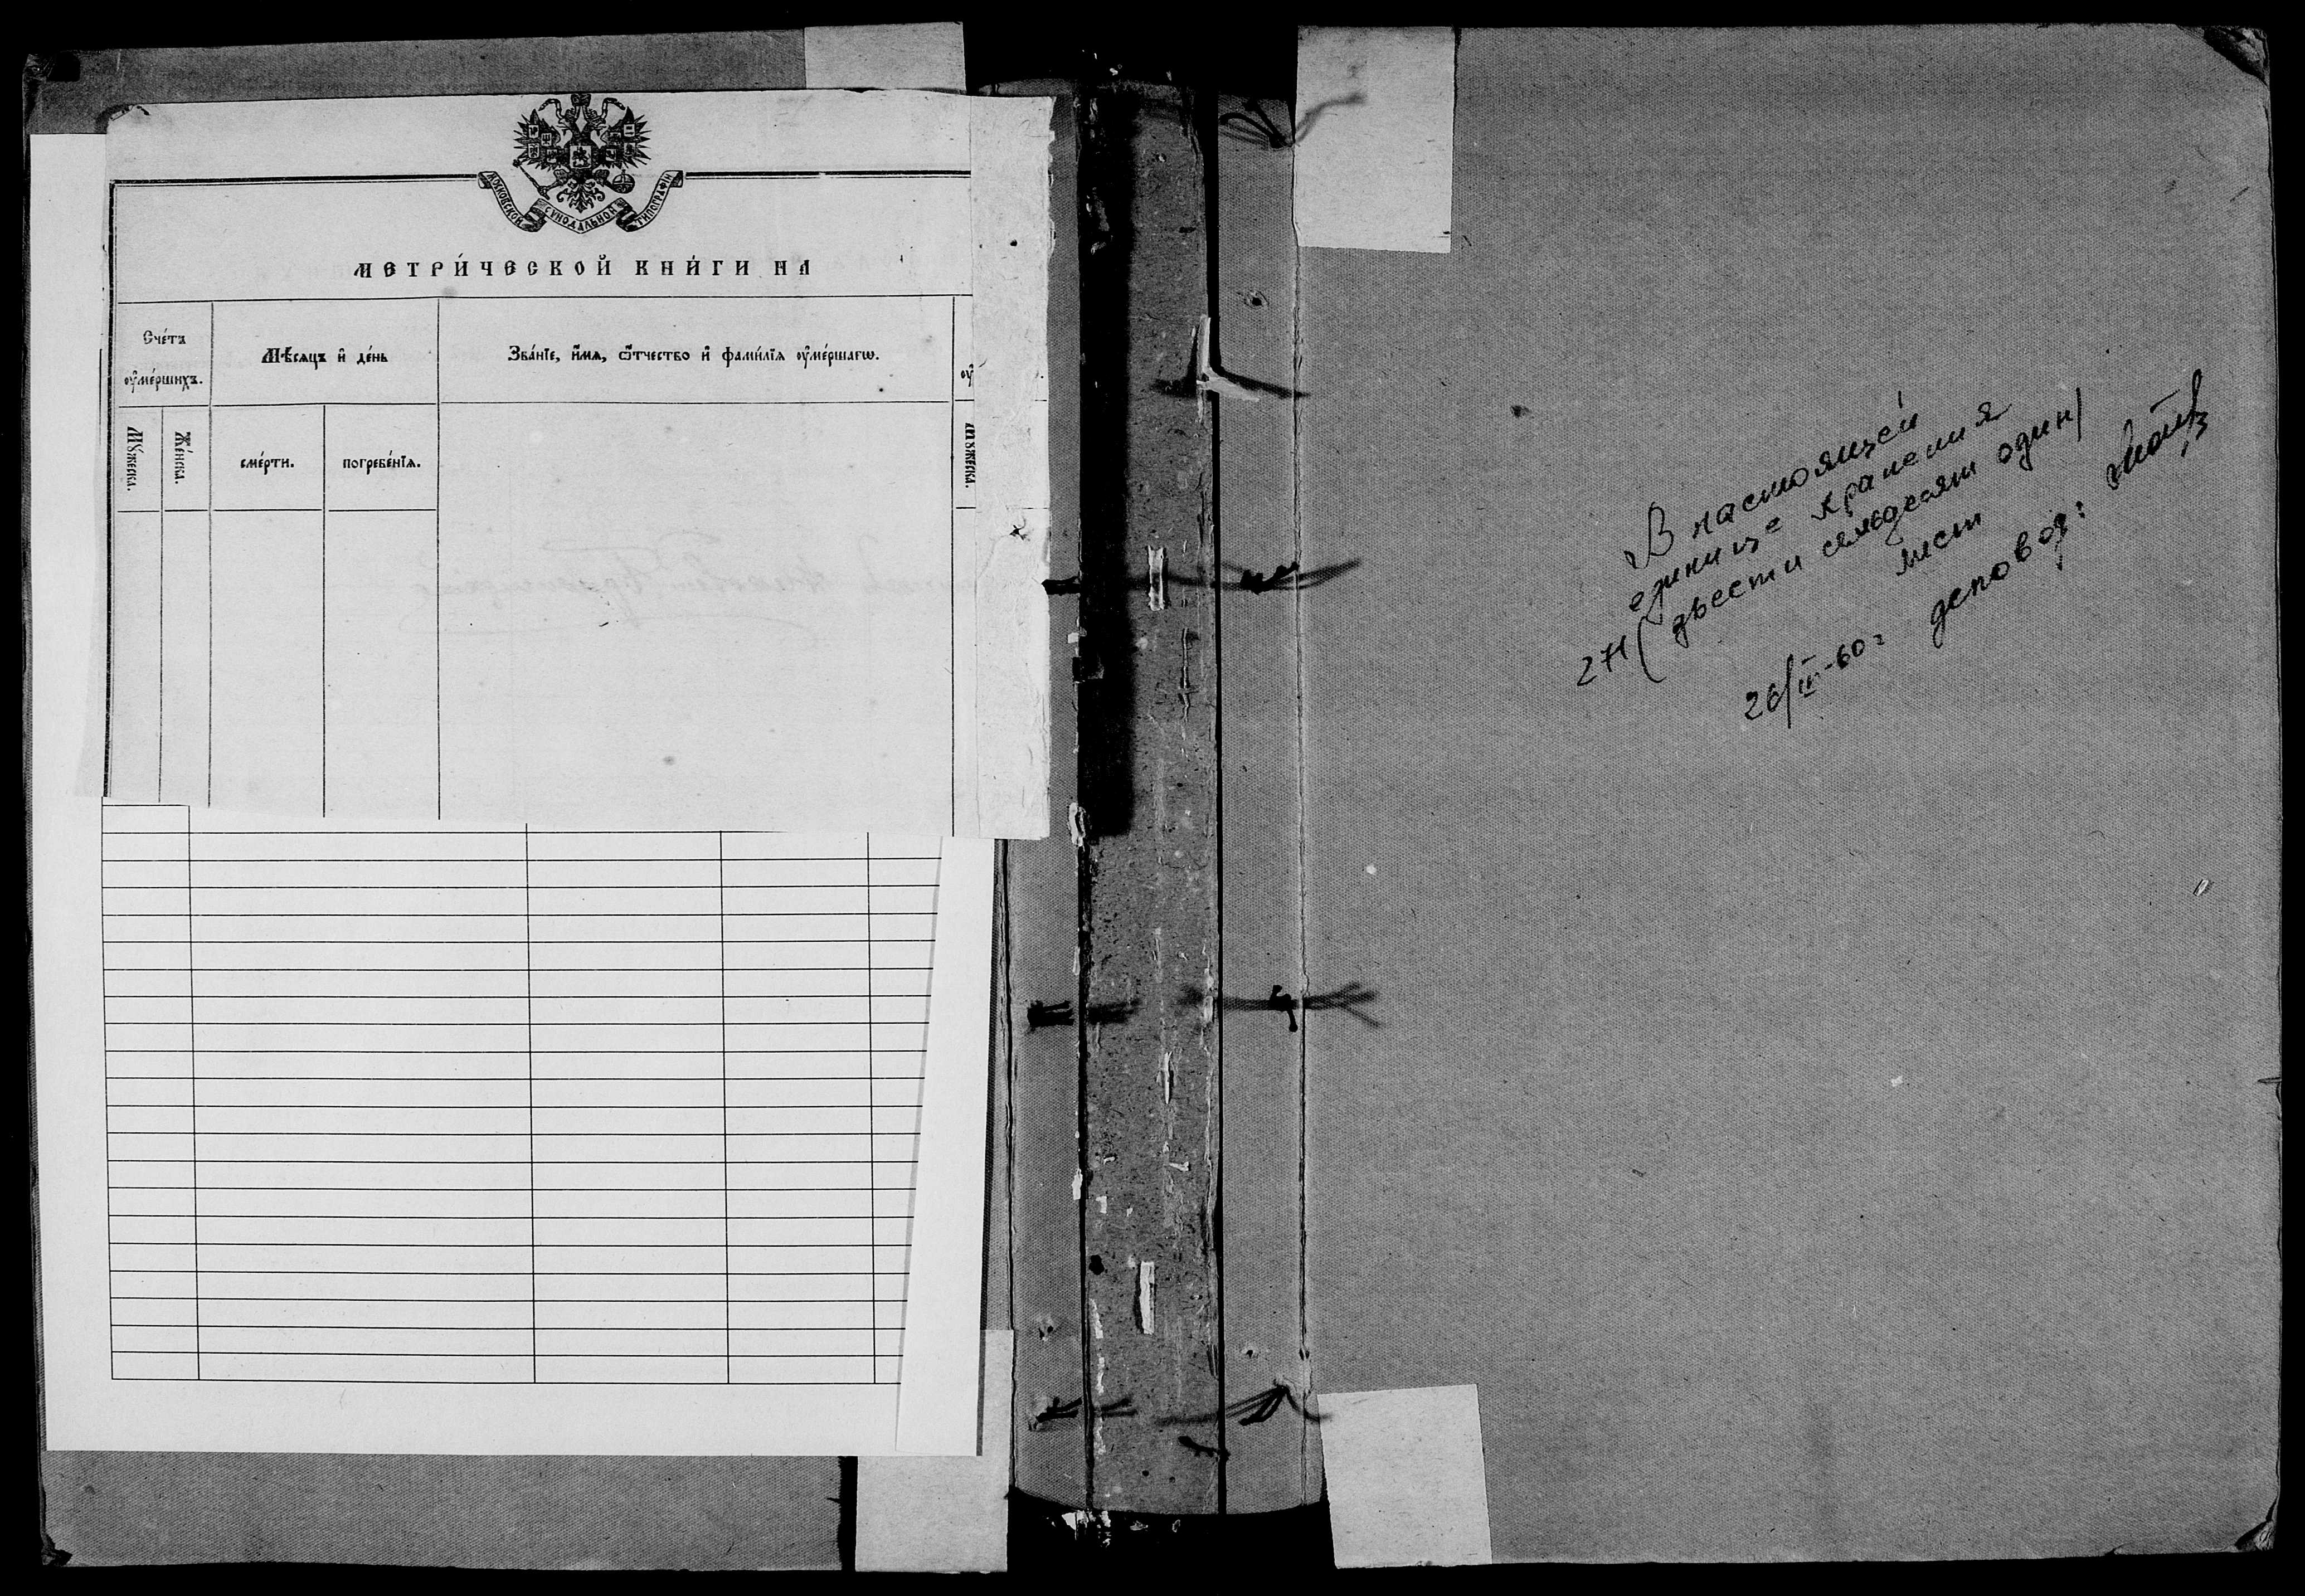 Московской Сѵнодальной Типографіи
МЕТРИ́ЧЕСКОЙ КНИ́ГИ НА
Сче́тъ
оу҆ме́ршихъ.
Мѣ́сяцъ и҆ де́нь
Зва́нїе, и҆́мѧ, ѻ҆́тчество и҆ фами́лїѧ оу҆ме́ршагѡ.
оу҆
Мꙋ́жеска.
Же́нска.
сме́рти.
погребе́нїѧ.
Мꙋ́жеска.
В настоящей
единице хранения
271 (двести семьдесят один)
лист
26/III-60г деловод: